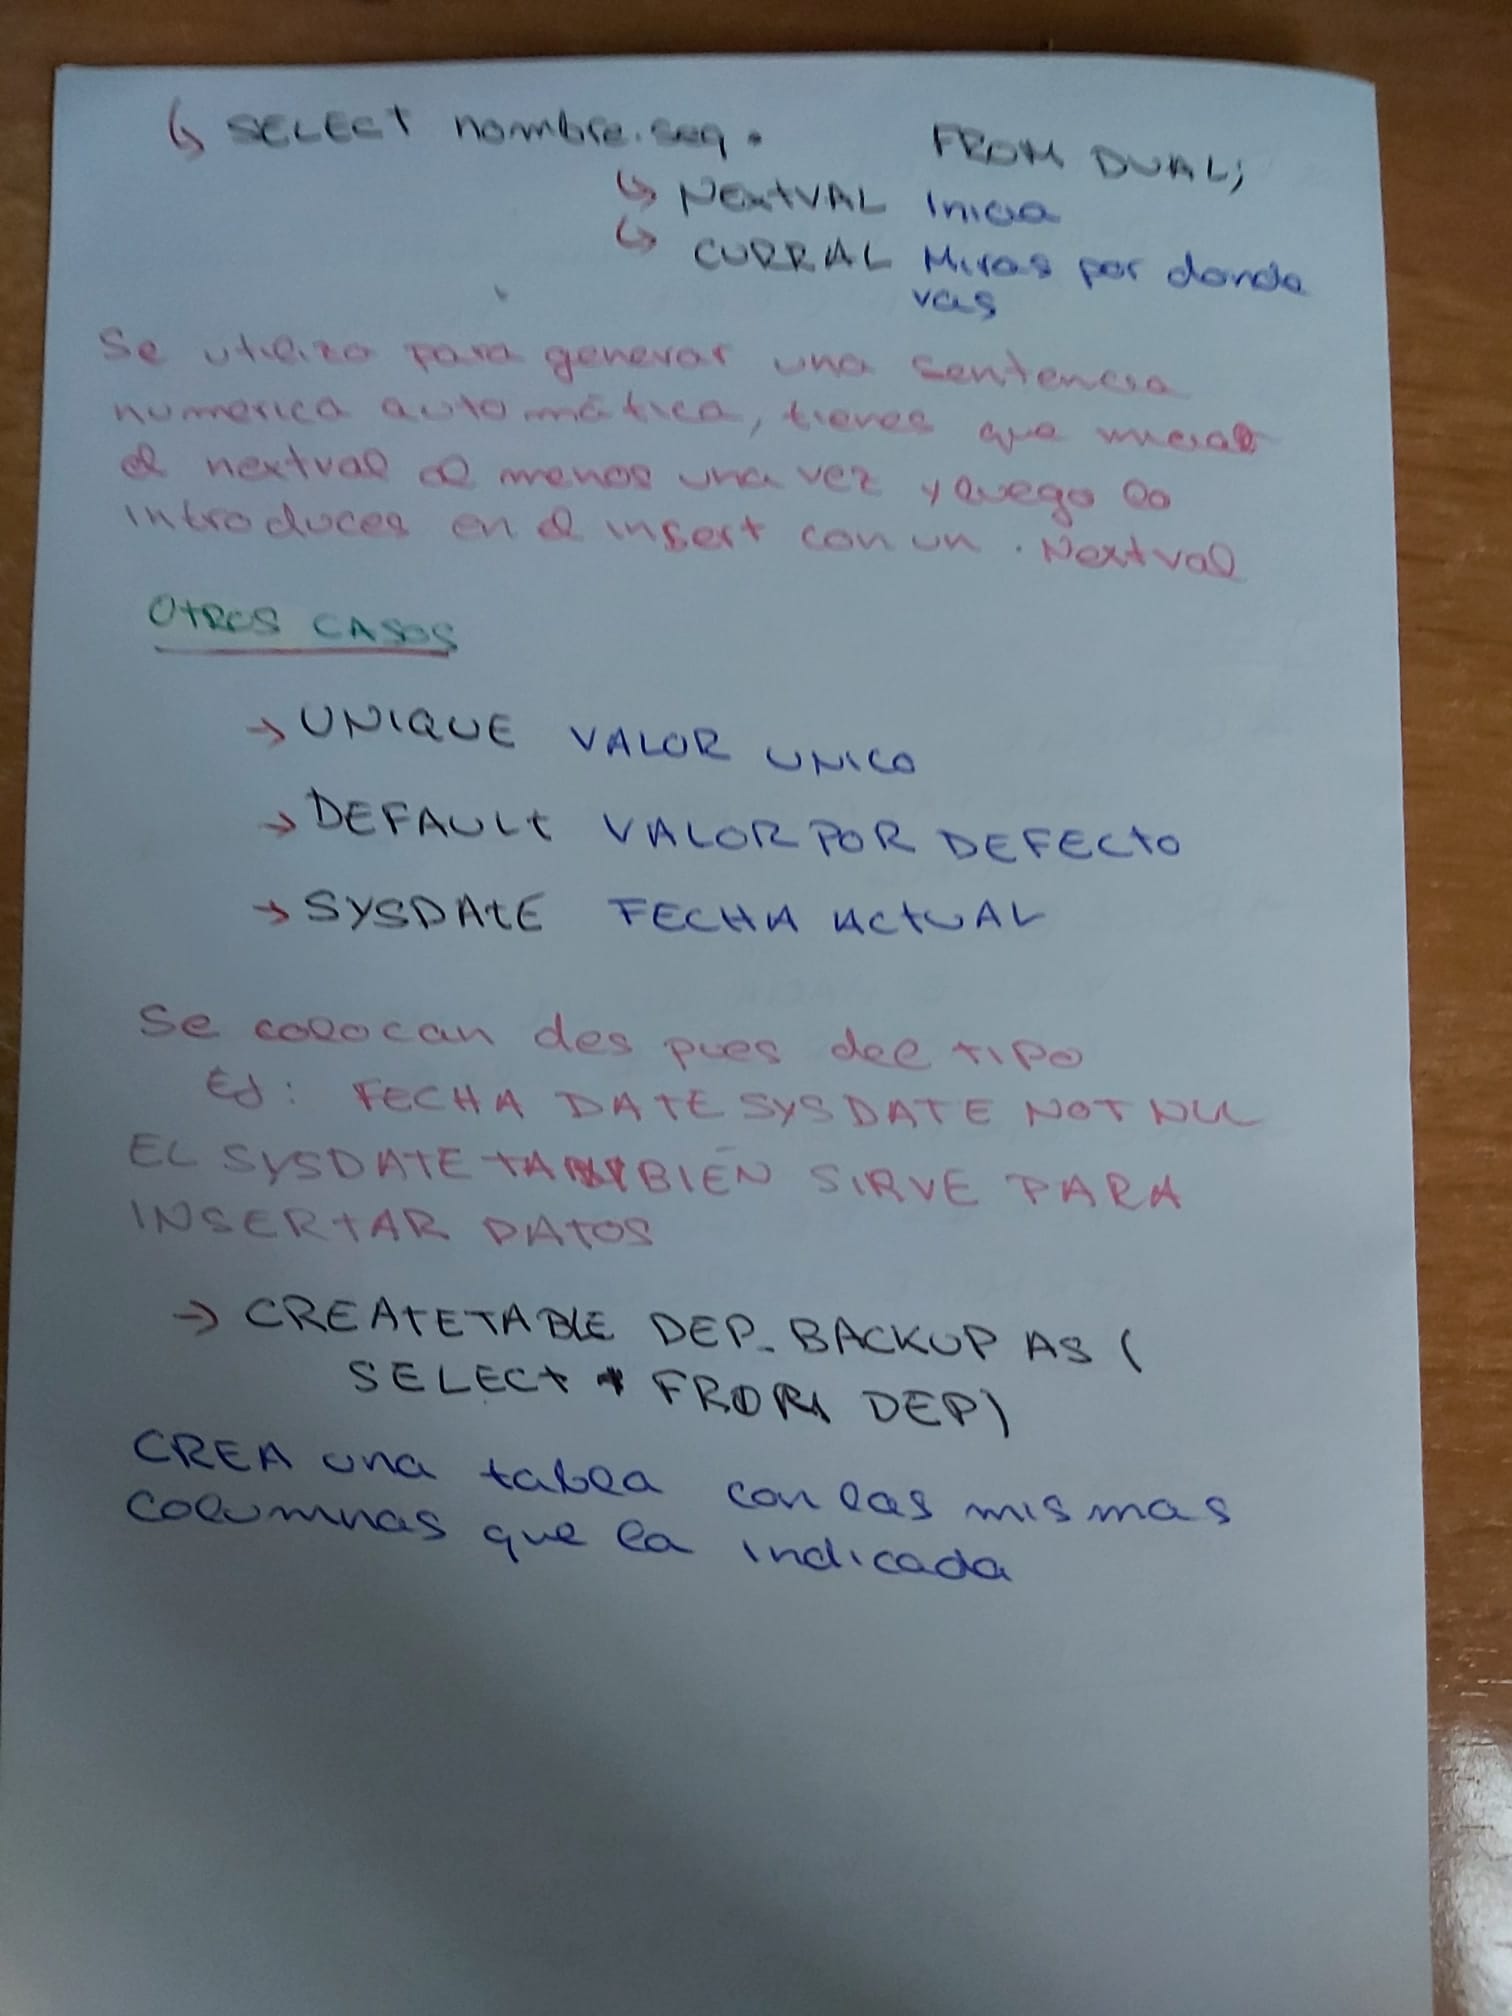 ↳ SELECT nombre.seq. FROM DUAL;
↳ NEXTVAL Inicia
↳ CURRAL Miras por donde
vas
Se utiliza para generar una sentencia
numerica automática, tienes que iniciar
el nextval al menos una vez y luego lo
introduces en el insert con un .Nextval
OTROS CASOS
→ UNIQUE VALOR UNICO
→ DEFAULT VALOR POR DEFECTO
→ SYSDATE FECHA ACTUAL
Se colocan des pues del tipo
EJ: FECHA DATE SYSDATE NOT NUL
EL SYSDATE TAMBIÉN SIRVE PARA
INSERTAR DATOS
→ CREATE TABLE DEP_BACKUP AS (
SELECT * FROM DEP)
CREA una tabla con las mismas
columnas que la indicada